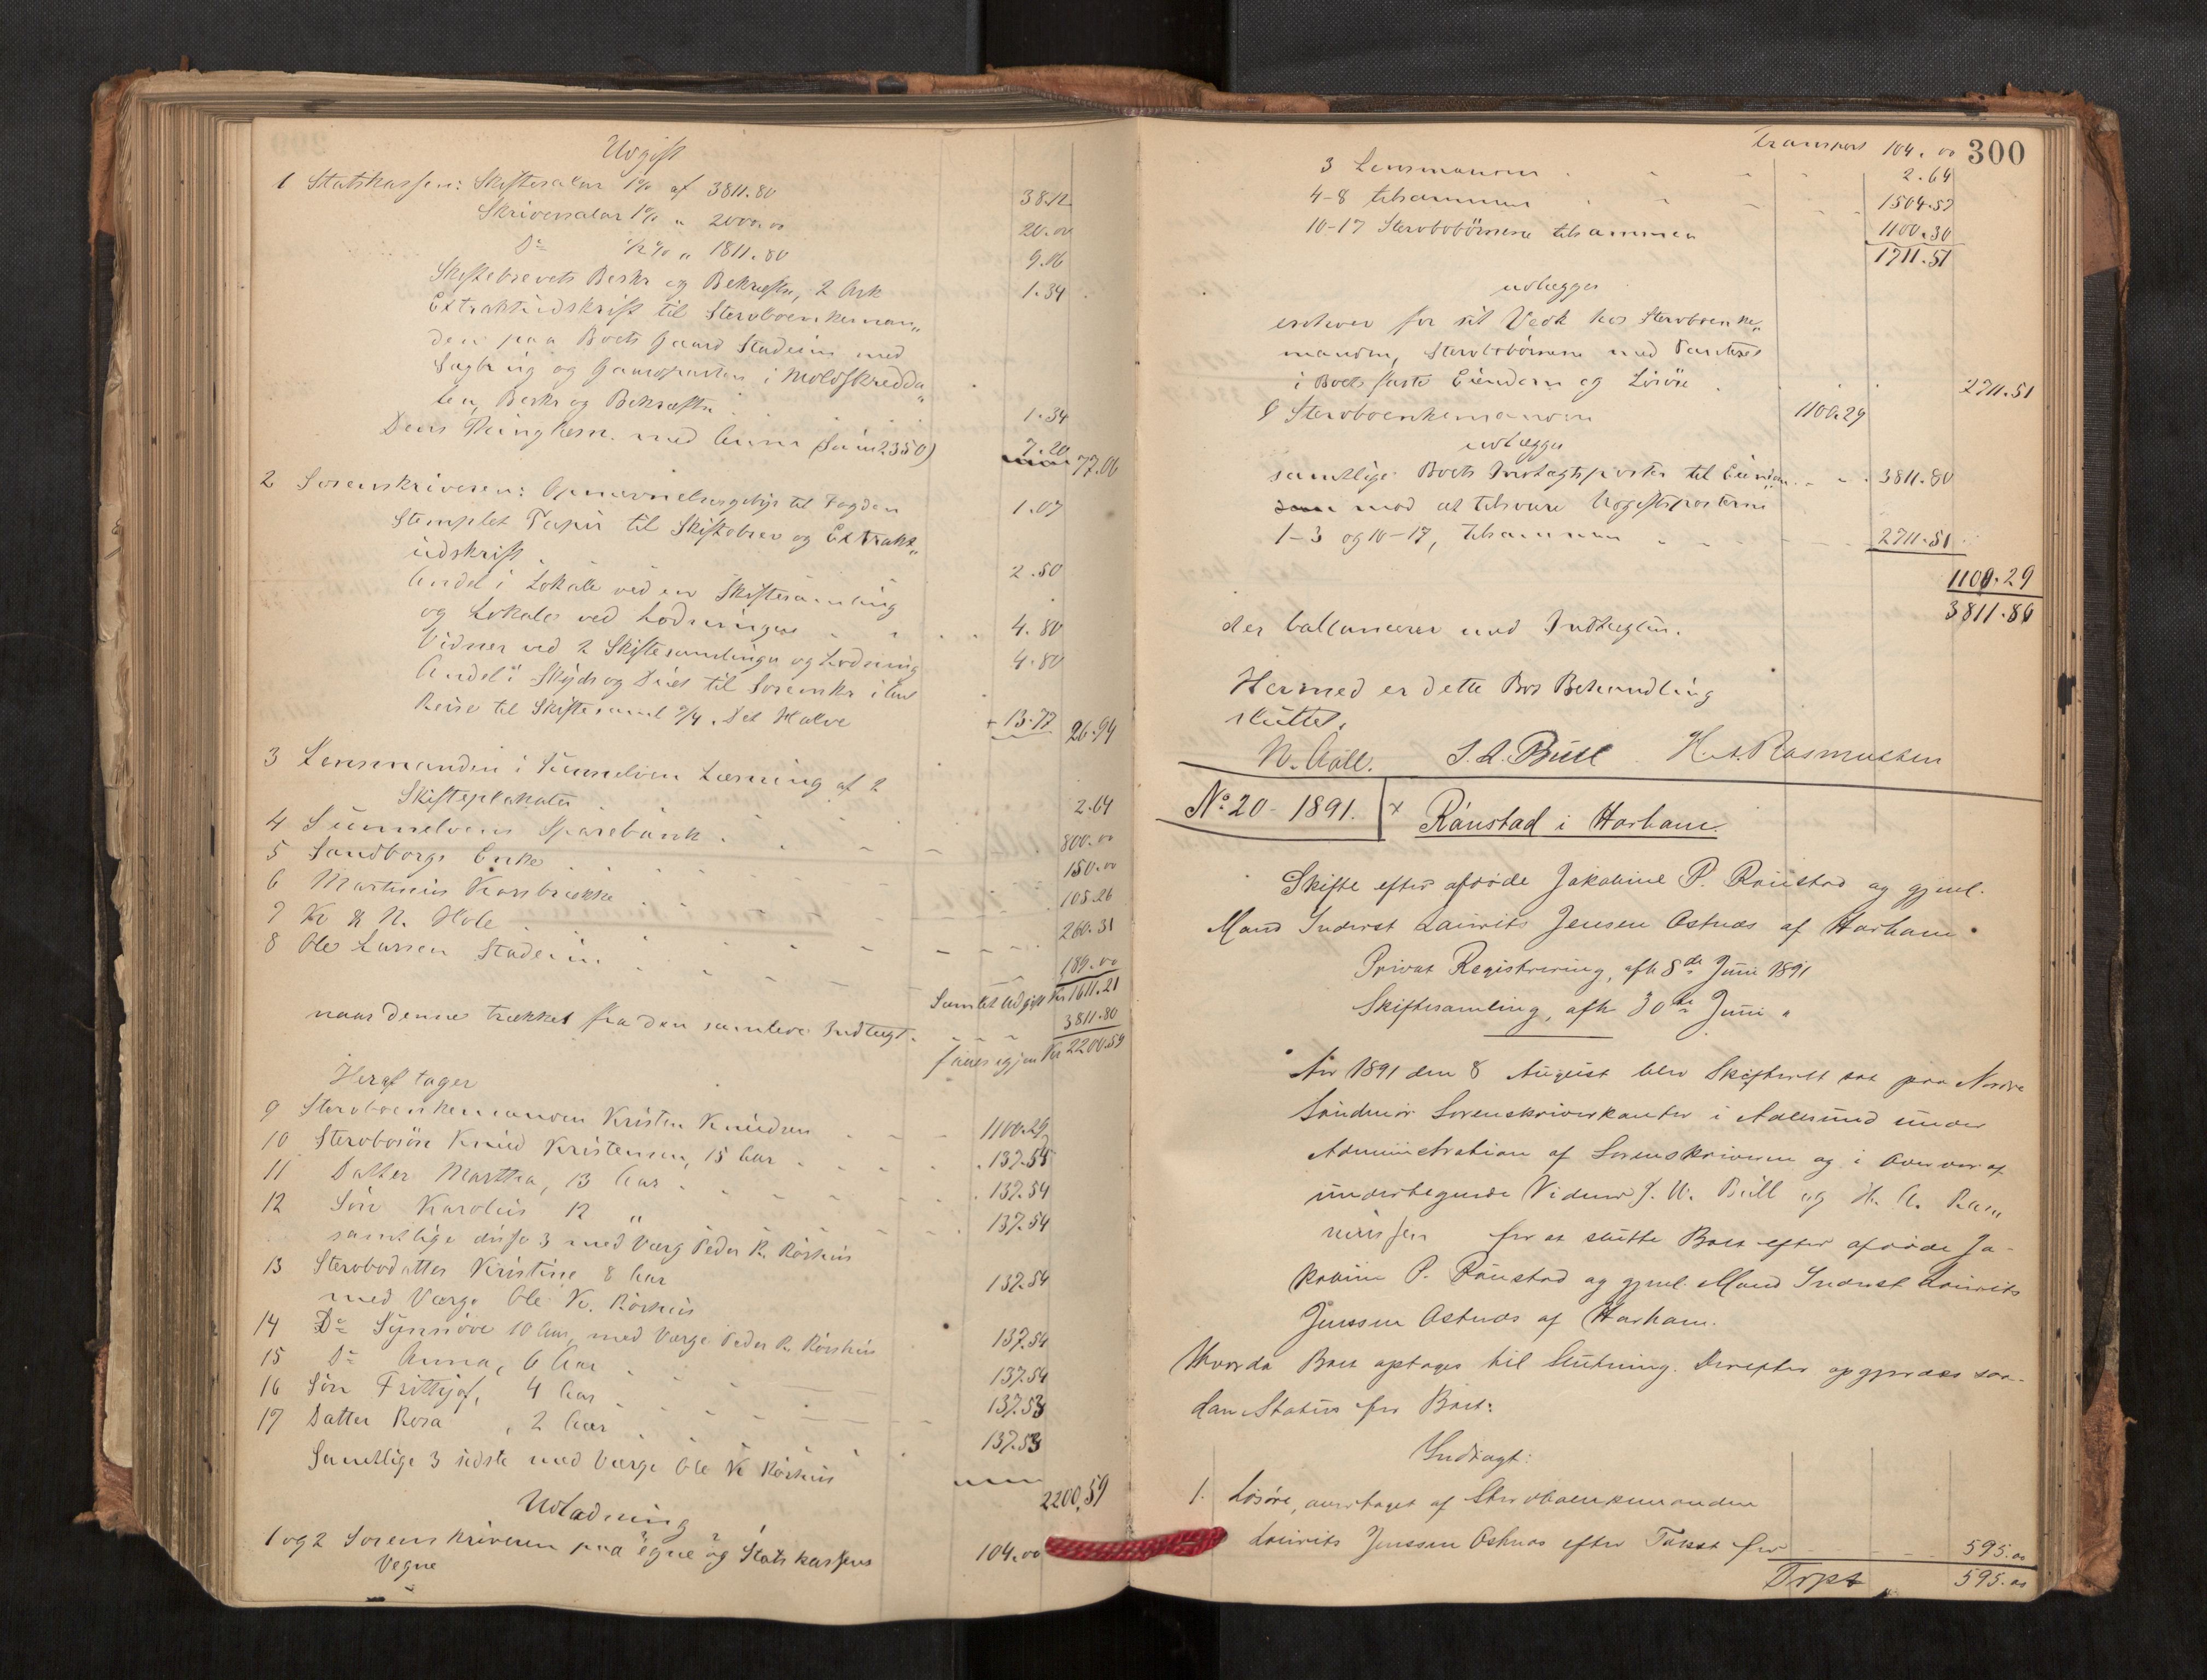 Udgift
1 Statskassen: Skiftesalær 1% af 3811.80 38.12
Skriversalær 1% " 2000.00 20.00
Do ½% " 1811.80 9.06
Skiftebrevets Beskr og Bekræftn, 2 Ark 1.34
Extraktudskrift til Sterboenkeman„
den paa Boets Gaard Stadeim med
Sagbrug og Gaardparten i Moldskredda„
len, Beskr og Bekræftn 1.34
Dens Thinglæsn. med Ann (Sum 2350) 7.20 77.06
2 Sorenskriveren: Opnævnelsesgebyr til Fogden 1.07
Stemplet Papir til Skiftebrev og Extrakt„
udskrift 2.50
Andel i Lokale ved en Skiftesamling
og Lokale ved Lodningen 4.80
Vidner ved 2 Skiftesamlinger og Lodning 4.80
Andel i Skyds og Diet til Sorenskr i
Reise til Skiftesaml 9/4. Det Halve 13.77 26.94
3 Lensmanden i Sunnelven Læsning af 2
Skifteplakater 2.64
4 Sunnelvens Sparebank 800.00
5 Sandborgs Enke 150.00
6 Martinus Korsbrekke 108.26
7 K & N. Hole 260.31
8 Ole Larsen Stadeim 189.00
Samlet Udgift Kr 1611.21
naar denne trækkes fra den samlede Indtægt 3811.80
faaes igjen Kr 2200.59
Heraf tager
9 Sterboenkemanden Kristen Knudsen 1100.29
10 Sterbosøn Knud Kristensen, 15 Aar 137.55
11 Datter Marttha, 13 Aar 137.54
12 Søn Karolus 12 " 137.54
samtlige disse 3 med Værg Peder K. Rørhus
13 Sterbodatter Kristine 8 Aar 137.54
med Værge Ole K. Rørhus
14 Do Synnøve 10 Aar, med Værge Peder K. Rørhus 137.54
15 Do Anna, 6 Aar 137.54
16 Søn Frittjof, 4 Aar 137.53
17 Datter Rosa, 2 Aar 137.53
Samtlige 3 sidste med Værge Ole K Rørhus
2200,59
Udlodning
1 og 2 Sorenskriveren paa egne og Statskassens
Vegne 104.00
Transport 104.00 300
3 Lensmanden 2.64
4-8 tilsammen 1504.57
10-17 Sterbobørnene tilsammen 1100.30
2711.51
udlægges
enhver for sit Vedk hos Sterboenke„
manden, Sterbobørnene med Panteret
i Boets faste Eiendom og Løsøre 2711.51
9 Sterboenkemanden 1100.29
udlægges
samtlige Boets Indtægtsposter til Eiendom 3811.80
mod at tilsvare Udgiftsposterne
1-3 og 10-17, tilsammen 2711.51
1100.29
3811.80
der ballancerer med Indtægten.
Hermed er dette Bos Behandling
sluttet.
N. Aall. I. A. Bull H. A. Rasmussen
No 20 - 1891. x Rønstad i Harham.
Skifte efter afdøde Jakobine P. Rønstad og gjenl.
Mand Inderst Laurits Jensen Ostnæs af Harham
Privat Registrering, afh 8de Juni 1891
Skiftesamling, afh 30te Juni "
Aar 1891 den 8 August blev Skifteret sat paa Nordre
Søndmør Sorenskriverkontor i Aalesund under
Administration af Sorenskriveren og i Overvær af
undertegnede Vidner J. A. Bull og H. A. Ras„
mussen for at slutte Boet efter afdøde Ja-
kobine P. Rønstad og gjenl. Mand Inderst Laurits
Jenssen Ostnæs af Harham.
Hvorda Boet optoges til Slutning. Derefter opgjordes saa-
dan Status for Boet:
Indtægt:
1. Løsøre, overtaget af Sterboenkemanden
Laurits Jenssen Ostnæs efter Taxt for 595.00
Trpt 595.00